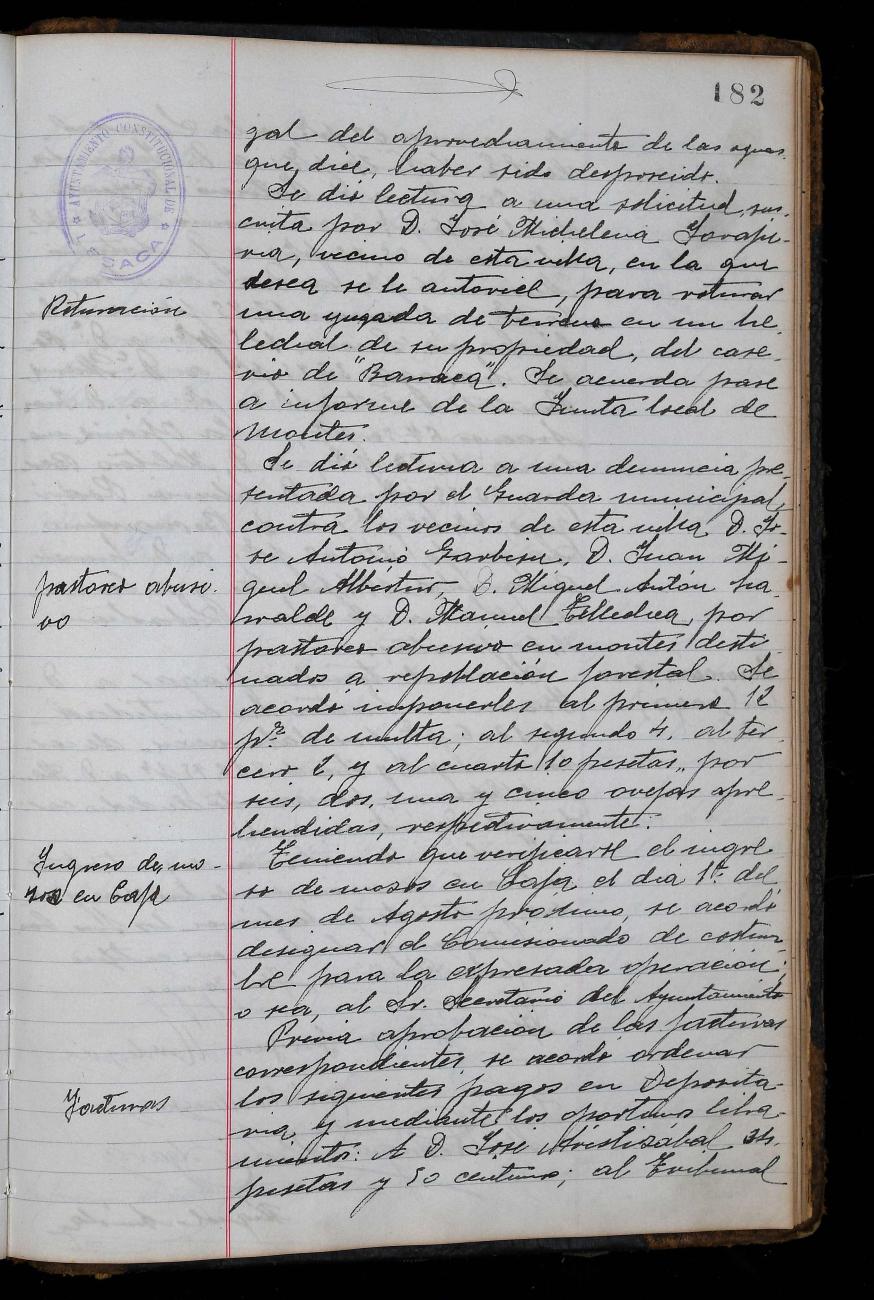 182
AYUNTAMIENTO CONSTITUCIONAL DE LESACA
gal del aprovechamiento de las aguas
que, dice, haber sido desposeido.
Se dió lectura a una solicitud sus-
crita por D. José Michelena
ria, vecino de esta villa, en la que
desea se le autorice, para roturar
Roturación
una yugada de terreno en un he-
lechal de su propiedad, del case-
rio de "Barraca". Se acuerda pase
a informe de la Junta local de
Montes.
Se dió lectura a una denuncia pre-
sentada por el Guarda municipal,
contra los vecinos de esta villa D. Jo-
se Antonio Garbisu, D. Juan Mi-
pastoreo abusi-
vo
guel Albistur, D. Miguel Antón
y D. Manuel Tellechea, por
pastoreo abusivo en montes desti-
nados a repoblación forestal. Se
acordó imponerles al primero 12
pts. de multa; al segundo 4, al ter-
cero 2, y al cuarto 10 pesetas, por
seis, dos, una y cinco ovejas apre-
hendidas, respectivamente.
Ingreso de mo-
zos en Caja
Teniendo que verificarse el ingre-
so de mozos en Caja el día 1º del
mes de Agosto próximo, se acordó
designar el Comisionado de costum-
bre para la expresada operación;
o sea, al Sr. Secretario del Ayuntamiento
Previa aprobación de las facturas
correspondientes, se acordó ordenar
Facturas
los siguientes pagos en Deposita-
ria, y mediante los oportunos libra-
mientos: A D. Jose Aristizábal 34
pesetas y 50 centimos; al Tribunal